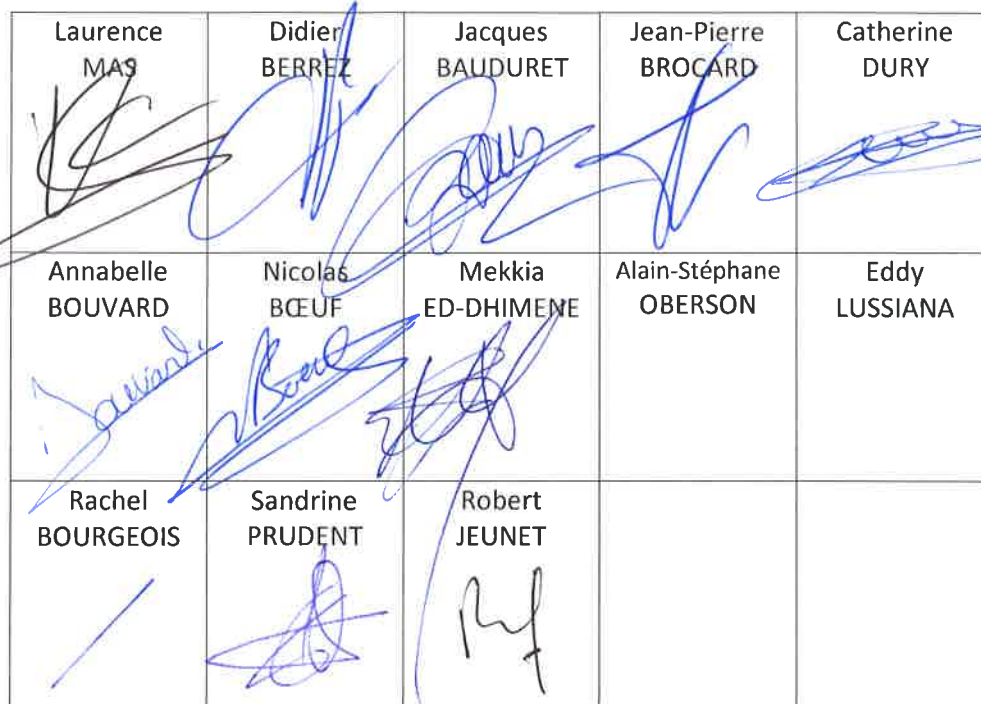 Laurence
MAS
Didier
BERREZ
Jacques
BAUDURET
Jean-Pierre
BROCARD
Catherine
DURY
Annabelle
BOUVARD
Nicolas
BŒUF
Mekkia
ED-DHIMENE
Alain-Stéphane
OBERSON
Eddy
LUSSIANA
Rachel
BOURGEOIS
Sandrine
PRUDENT
Robert
JEUNET